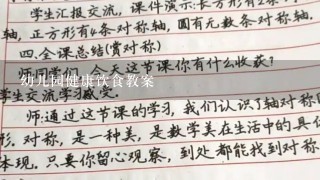 学生汇报交流，课件演示：长方形有2条
轴，正方形有4条对称轴，圆有无数条对称轴.
四.全课总结(赏对称)
今天这节课你有什么收获?
幼儿园健康饮食教案
学生交流学习感受.
师:通过这节课的学习，我们认识了轴对称
形.对称，是一种美，是数学美在生活中的具
体现.只要你留心观察，到处都能找到对称